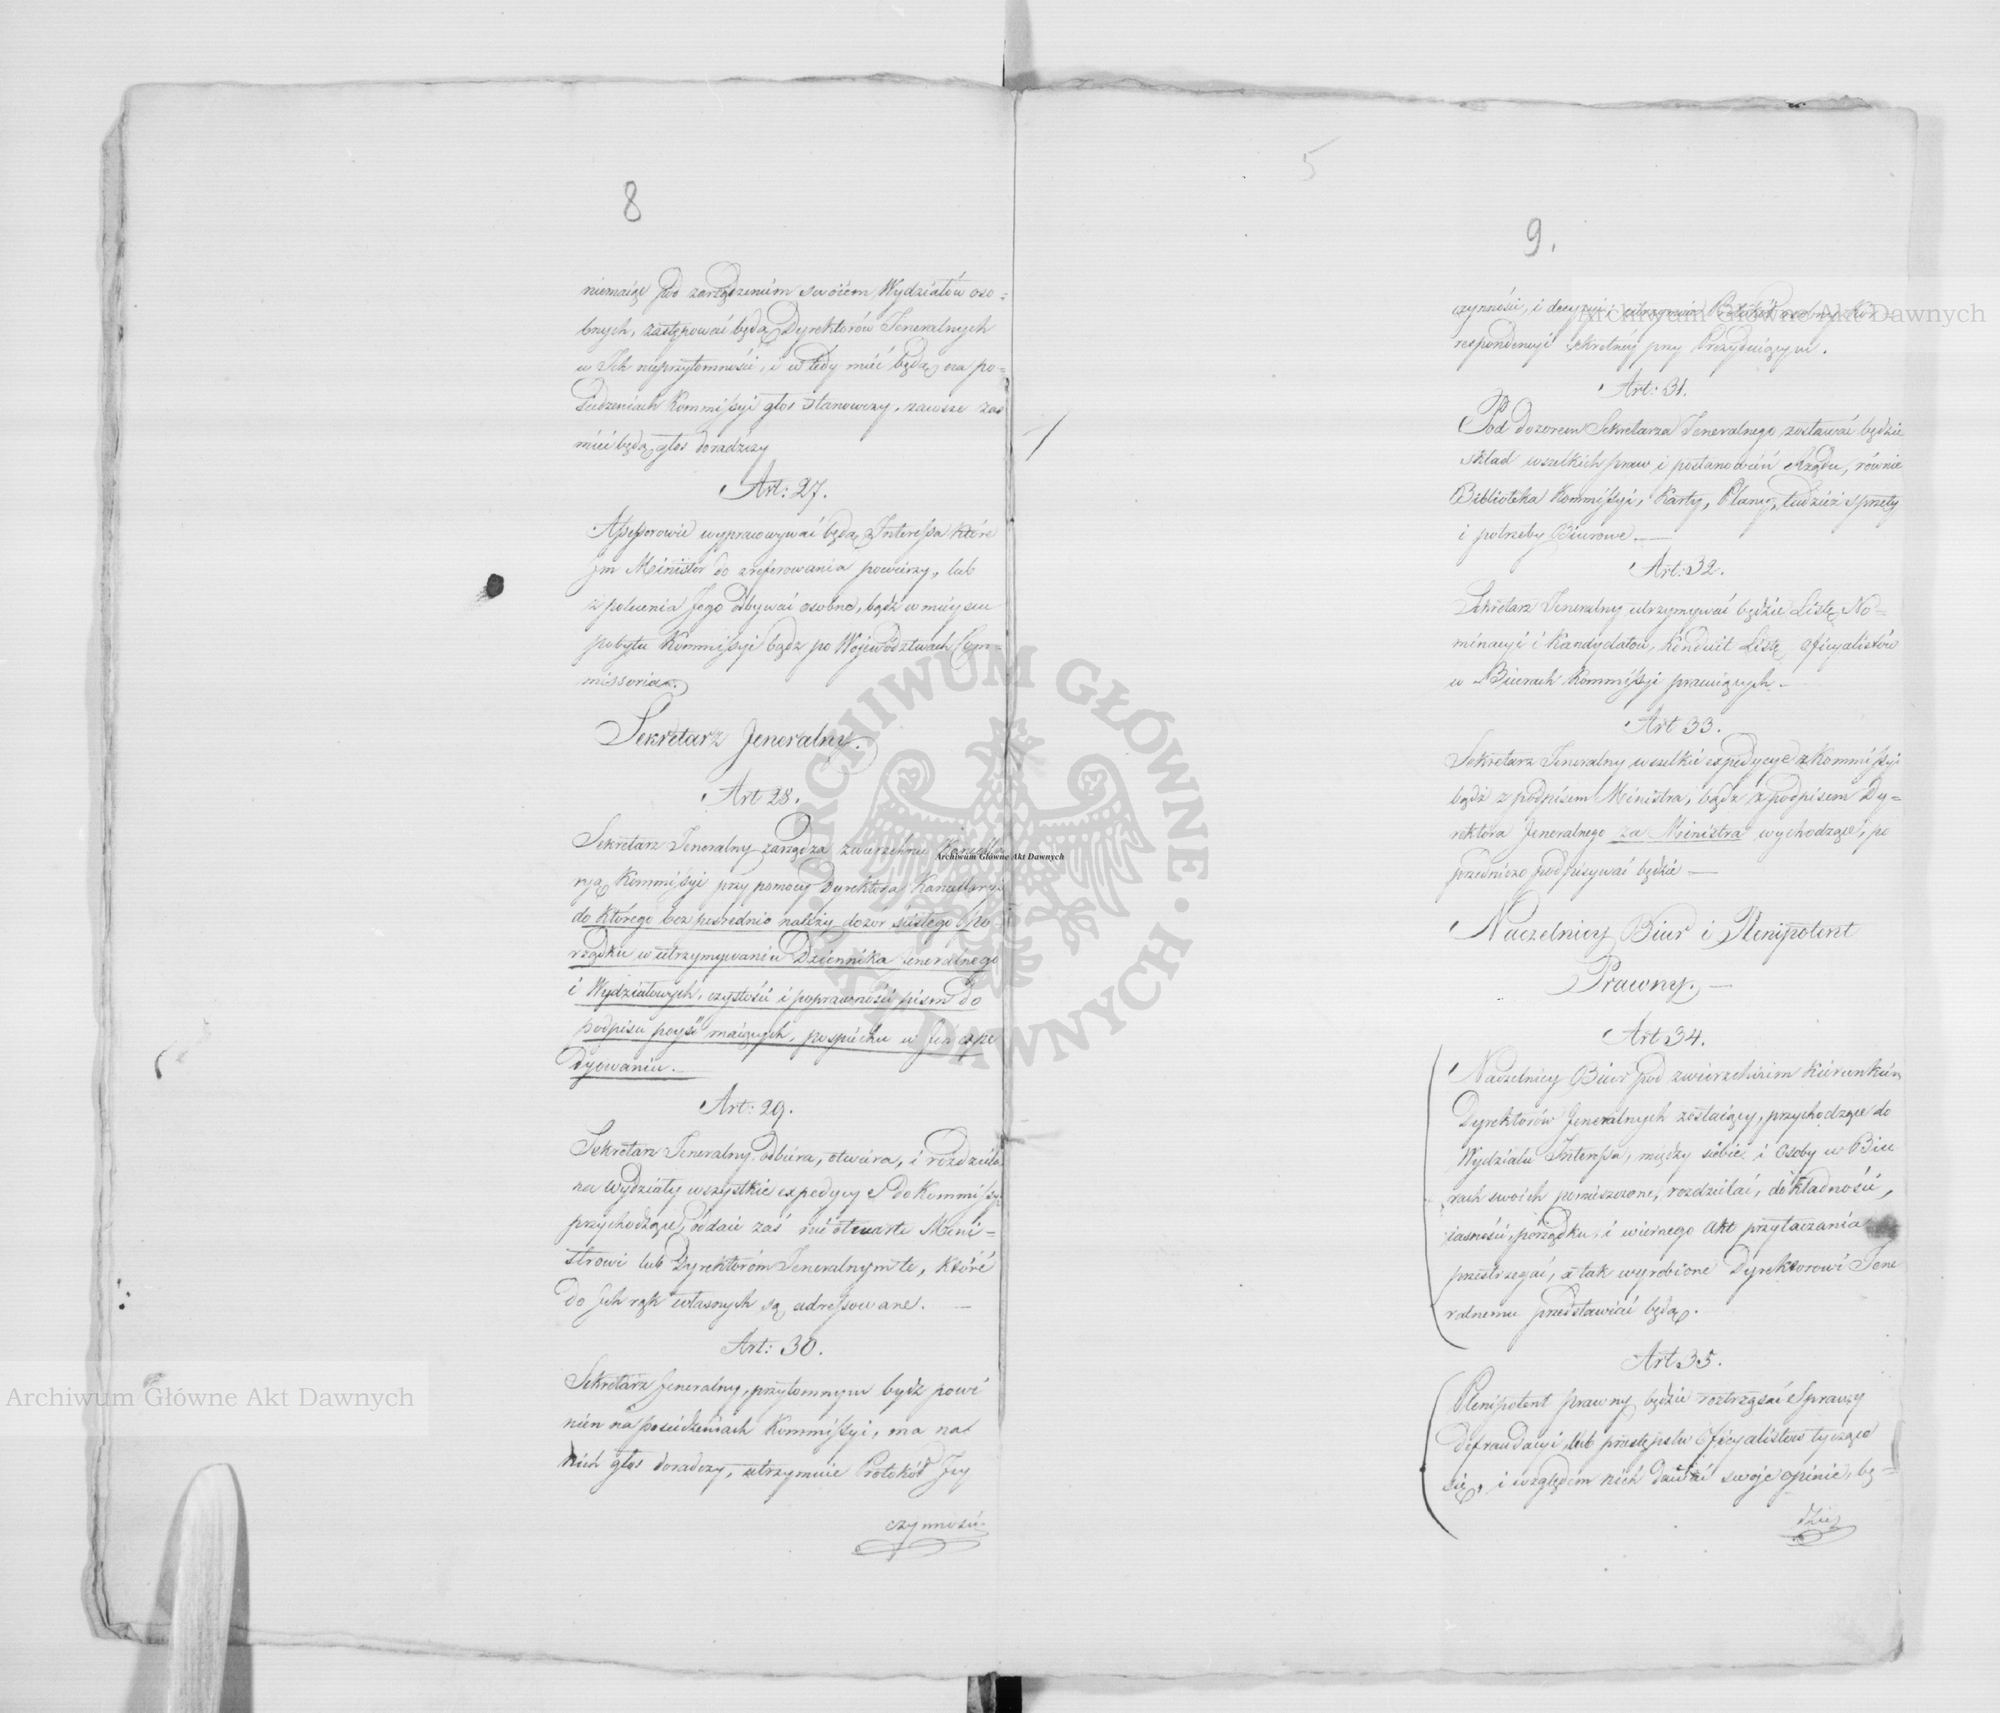 8
niemaiąc pod zarządzeniem swoiem Wydziałów oso-
bnych, zastępować będą Dyrektorów Jeneralnych
w Ich nieprzytomności, i wtedy mieć będą na po-
siedzeniach Kommissyi głos stanowczy, zawsze zaś
mieć będą głos doradczy
Art: 27.
Assessorowie wypracowywać będą Interessa które
im Minister do zreferowania powierzy, lub
z polecenia Jego odbywać osobno, bądź w mieyscu
pobytu Kommissyi bądz po Województwach Com-
missoria.
Sekretarz Jeneralny.
Art 28.
Sekretarz Jeneralny zarządza zwierzchnie Kancella
ryą Kommissyi przy pomocy Dyrektora Kancellaryi
do którego bezpośrednio należy dozór ścisłego po-
rządku w utrzymywaniu Dziennika Jeneralnego
i Wydziałowych, czystości i poprawności pism do
podpisu poyść maiących, pospiechu w Jch expe
dyowaniu.
Art: 29.
Sekretarz Jeneralny odbiera, otwiera, i rozdziela
na wydziały wszystkie expedycye do Kommissyi
przychodzące, oddaie zaś nie otwarte Mini-
strowi lub Dyrektoróm Jeneralnym te, które
do Jch rąk własnych są adressowane.
Art: 30.
Sekretarz Jeneralny, przytomnym bydź powi
nien na posiedzeniach Kommissyi, ma na
nich głos doradczy, utrzymuie Protokół Jey
czynności
5
9.
czynności, i decyzyi, utrzymuie Protokół osobny Ko-
respondencyi sekretnéy przy Prezyduiącym.
Art: 31.
Pod dozorem Sekretarza Jeneralnego zostawać będzie
skład wszelkich praw i postanowień Rządu, równie
Biblioteka Kommissyi, Karty, Plany, tudzież sprzęty
i potrzeby Biurowe.
Art: 32.
Sekretarz Jeneralny utrzymywać będzie Listę No-
minacyi i Kandydatów, Konduit Listę officyalistów
w Biurach Kommissyi pracuiących.
Art 33.
Sekretarz Jeneralny wszelkie expedycye z Kommissyi
bądź z podpisem Ministra, bądz z podpisem Dy-
rektora Jeneralnego za Ministra wychodzące, po
przedniczo podpisywać będzie
Naczelnicy Biur i Plenipotent
Prawny.
Art 34.
Naczelnicy Biur pod zwierzchnim kierunkiem
Dyrektorów Jeneralnych zostaiący, przychodzące do
Wydziału Interessa, między siebie i osoby w Biu
rach swoich pomieszczone, rozdzielać, dokładności,
iasności, porządku, i wiernego akt przytaczania
przestrzegać, a tak wyrobione Dyrektorowi Jene
ralnemu przedstawiać będą.
Art 35.
Plenipotent prawny będzie roztrząsać Sprawy
defraudacyi, lub przestępstw Officyalistów tyczące
się, i względem nich dawać swoje opinie, bę-
dzie
Archiwum Główne Akt Dawnych
Archiwum Główne Akt Dawnych
Archiwum Główne Akt Dawnych
ARCHIWUM GŁÓWNE AKT DAWNYCH